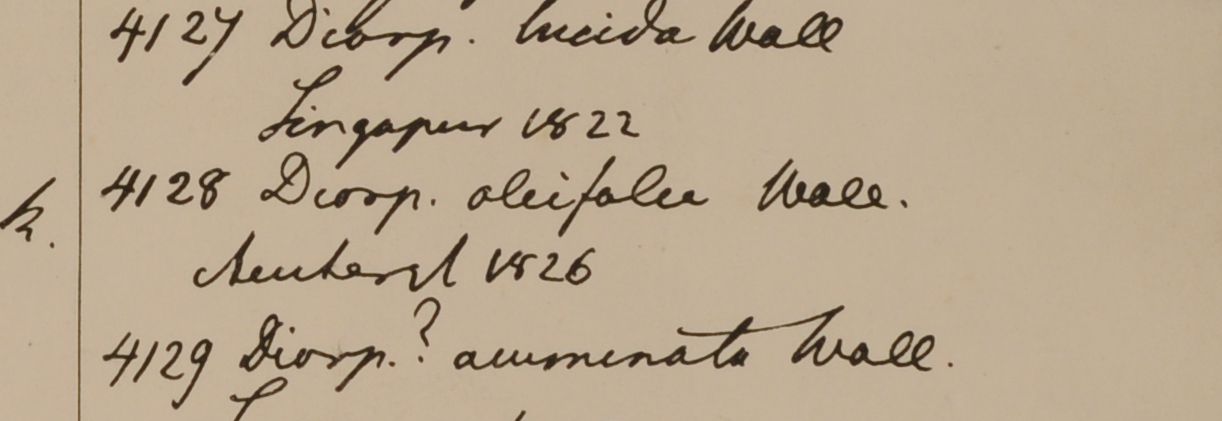 4127 Diosp. lucida Wall
Singapur 1822
k. 4128 Diosp. oleifolia Wall.
1826
4129 Diosp.? acuminata Wall.